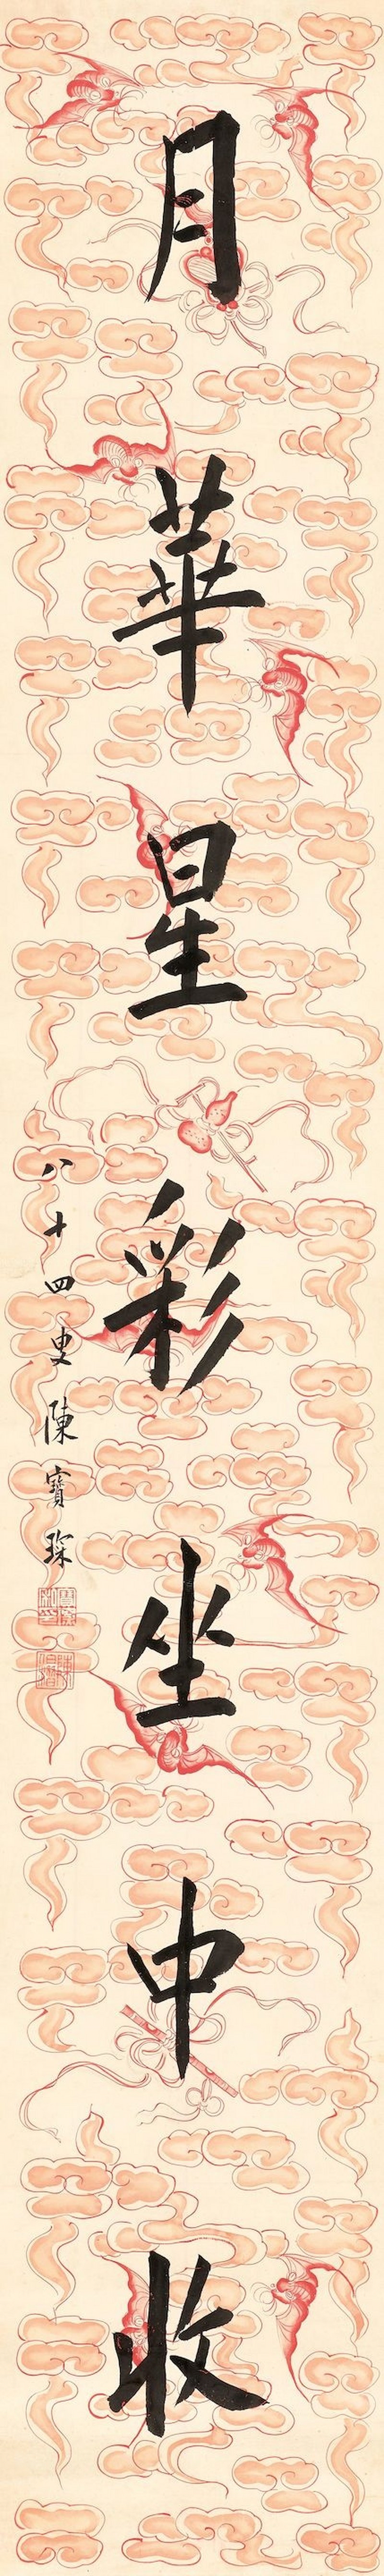 月華星彩坐中收
八十四叟陳寶琛